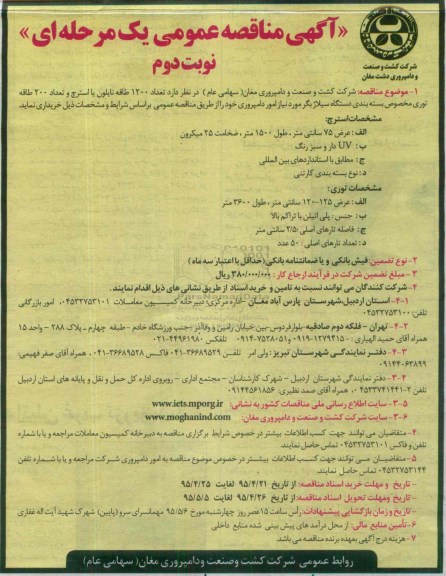 «آگهی مناقصه عمومی یک مرحله ای»
نوبت دوم
شرکت کشت و صنعت
و دامپروری دشت مغان
۱- موضوع مناقصه: شرکت کشت و صنعت و دامپروری مغان( سهامی عام ) در نظر دارد تعداد ۱۲۰۰ طاقه نایلون یا استرچ و تعداد ۲۰۰ طاقه
توری مخصوص بسته بندی دستگاه سیلاژ بگر مورد نیاز امور دامپروری خود را از طریق مناقصه عمومی براساس شرایط و مشخصات ذیل خریداری نماید.
مشخصات استرچ:
الف : عرض ۷۵ سانتی متر ، طول ۱۵۰۰ متر ، ضخامت ۲۵ میکرون
ب : UV دار و سبز رنگ
ج : مطابق با استانداردهای بین المللی
د : نوع بسته بندی کارتنی
مشخصات توری:
الف : عرض ۱۲۵-۱۲۰ سانتی متر ، طول ۳۶۰۰ متر
ب : جنس : پلی اتیلن با تراکم بالا
ج : فاصله تارهای اصلی :۲/۵ سانتی متر
د : تعداد تارهای اصلی : ۵۰ عدد
۲- نوع تضمین: فیش بانکی و یا ضمانتنامه بانکی(حداقل با اعتبار سه ماه )
۳- مبلغ تضمین شرکت در فرآیند ارجاع کار : ۳۸۰/۰۰۰/۰۰۰ ریال
۴- شرکت کنندگان می توانند نسبت به تامین و خرید اسناد از طریق نشانی های ذیل اقدام نمایند.
۴-۱- استان اردبیل-شهرستان پارس آباد مغان - اداره مرکزی- دبیرخانه کمیسیون معاملات ۰۴۵۳۲۷۵۳۱۰۱ امور بازرگانی
تلفن ۰۴۵۳۲۷۵۳۱۰۰
۴-۲- تهران - فلکه دوم صادقیه -بلوار فردوس -بین خیابان رامین و وفاآذر -جنب ورزشگاه خادم - طبقه چهارم - پلاک ۲۸۸ - واحد ۱۵
همراه آقای حمید الهیاری : ۰۹۱۹-۱۲۷۹۳۱۵ ۰۹۱۴-۷۵۲۸۰۵۱ تلفکس ۴۴۹۶۱۹۸۰-۰۲۱
۳-۴- دفتر نمایندگی شهرستان تبریز : ولی امر تلفن ۳۶۶۸۹۵۲۹-۰۴۱ فاکس ۳۶۶۸۹۵۲۸-۰۴۱ ، همراه آقای صفر فهیمی:
۰۹۱۴۴۰۶۳۸۹۹
۴-۳- دفتر نمایندگی شهرستان اردبیل - شهرک کارشناسان - مجتمع اداری - روبروی اداره کل حمل و نقل و پایانه های استان اردبیل
تلفن ۲-۰۴۵۳۳۷۴۱۴۴۱ ، همراه آقای صمد نظیری: ۰۹۱۴۴۵۶۱۸۵۶
۵-۳- سایت اطلاع رسانی ملی مناقصات کشور به نشانی: www.iets.mporg.ir
۶-۳- سایت شرکت کشت و صنعت و دامپروری مغان: www.moghanind.com
۴- متقاضیان می توانند جهت کسب اطلاعات بیشتر در خصوص شرایط برگزاری مناقصه به دبیرخانه کمیسیون معاملات مراجعه و یا با شماره
تلفن و فاکس ۰۴۵۳۲۷۵۳۱۰۱ تماس حاصل نمایند.
۵- متقاضیان می توانند جهت کسب اطلاعات بیشتر در خصوص موضوع مناقصه به امور دامپروری شرکت مراجعه و یا با شماره تلفن
۰۴۵۳۲۷۵۳۱۴۴ تماس حاصل نمایند.
- تاریخ و مهلت خرید اسناد مناقصه: از تاریخ ۹۵/۴/۲۱ لغایت ۹۵/۴/۲۵
- تاریخ و مهلت تحویل اسناد مناقصه: از تاریخ ۹۵/۴/۲۶ لغایت ۹۵/۵/۵
- تاریخ و زمان بازگشایی پیشنهادات: رأس ساعت ۱۵ عصر روز چهارشنبه مورخ ۹۵/۵/۶ مهمانسرای سرو (پایین) شهرک شهید آیت اله غفاری
۶- تأمین منابع مالی: از محل درآمد های پیش بینی شده منابع داخلی
۷- هزینه درج آگهی بعهده برنده مناقصه می باشد.
روابط عمومی شرکت کشت وصنعت ودامپروری مغان( سهامی عام)